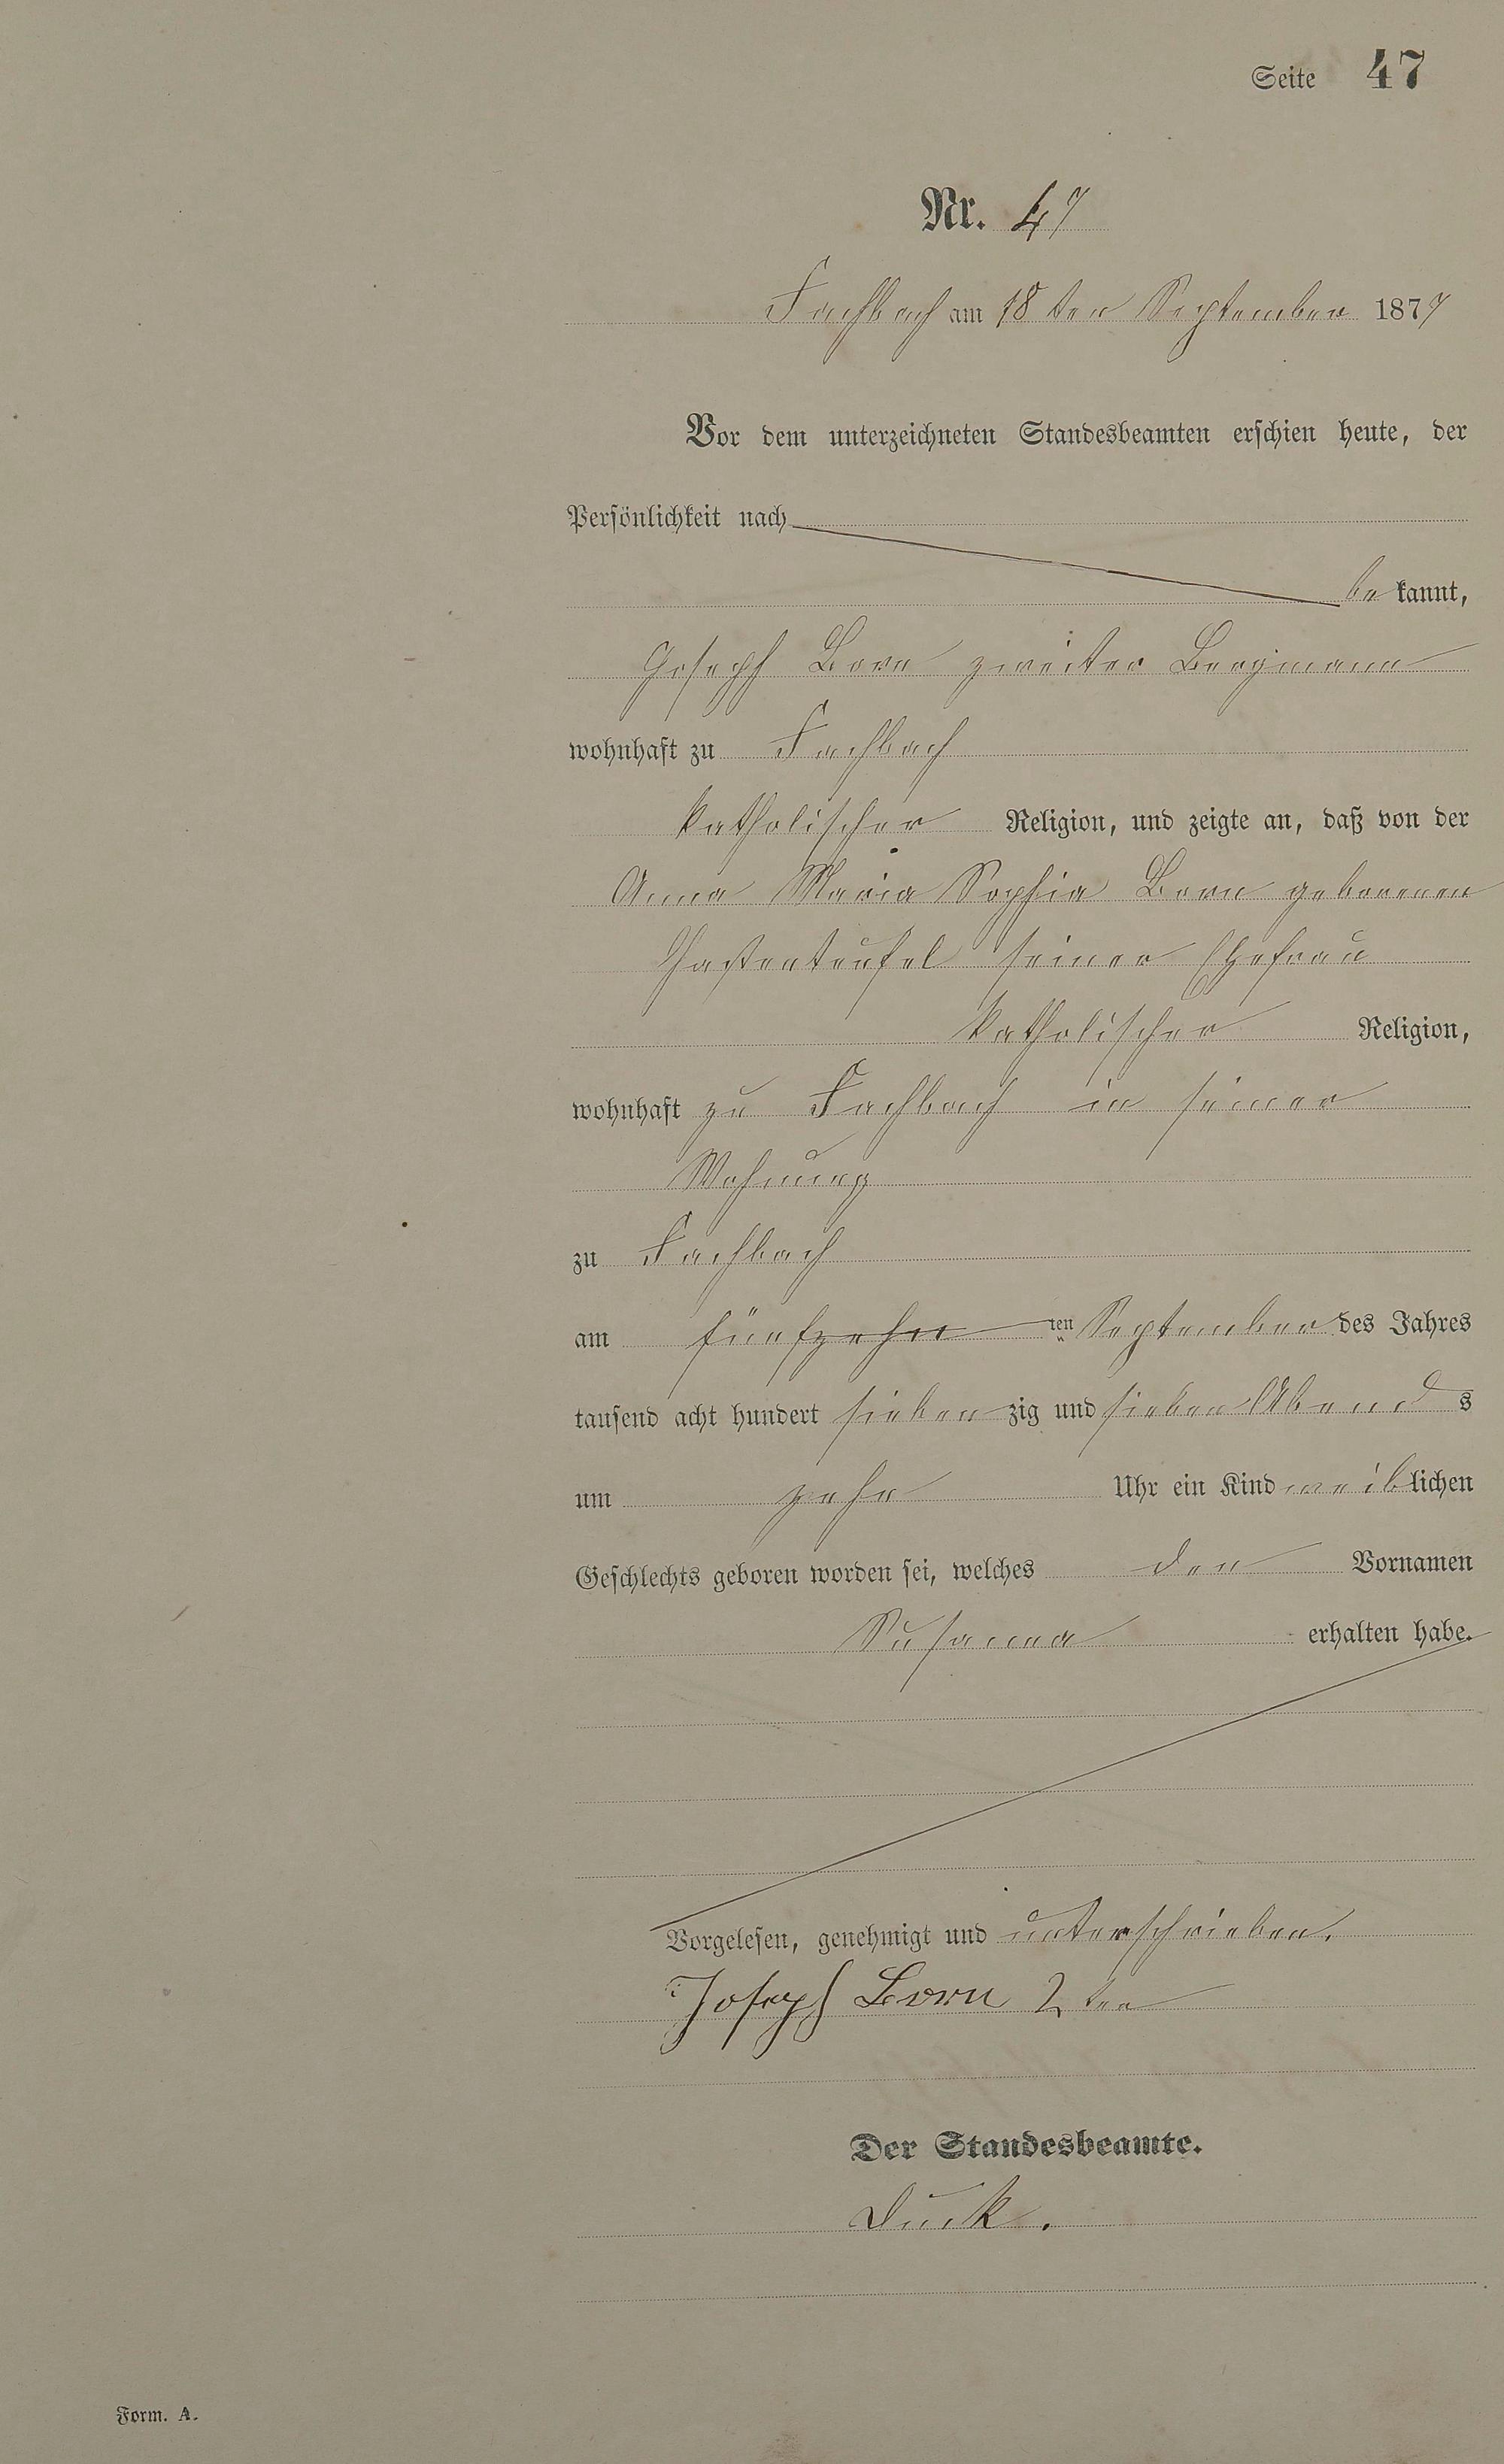 Seite 47
Nr. 47
Fachbach am 18ten September 1877
Vor dem unterzeichneten Standesbeamten erschien heute, der
Persönlichkeit nach
be kannt,
Joseph Born zweiter Bergmann
wohnhaft zu Fachbach
katholischer Religion, und zeigte an, daß von der
Anna Maria Sophia Born geborenen
seiner Ehefrau
katholischer Religion,
wohnhaft zu Fachbach in seiner
Wohnung
zu Fachbach
am fünfzehn ten September des Jahres
tausend acht hundert sieben zig und sieben Abend s
um zehn Uhr ein Kind weiblichen
Geschlechts geboren worden sei, welches den Vornamen
Susanna erhalten habe.
Vorgelesen, genehmigt und unterschrieben.
Joseph Born 2ter
Der Standesbeamte.
Form. A.